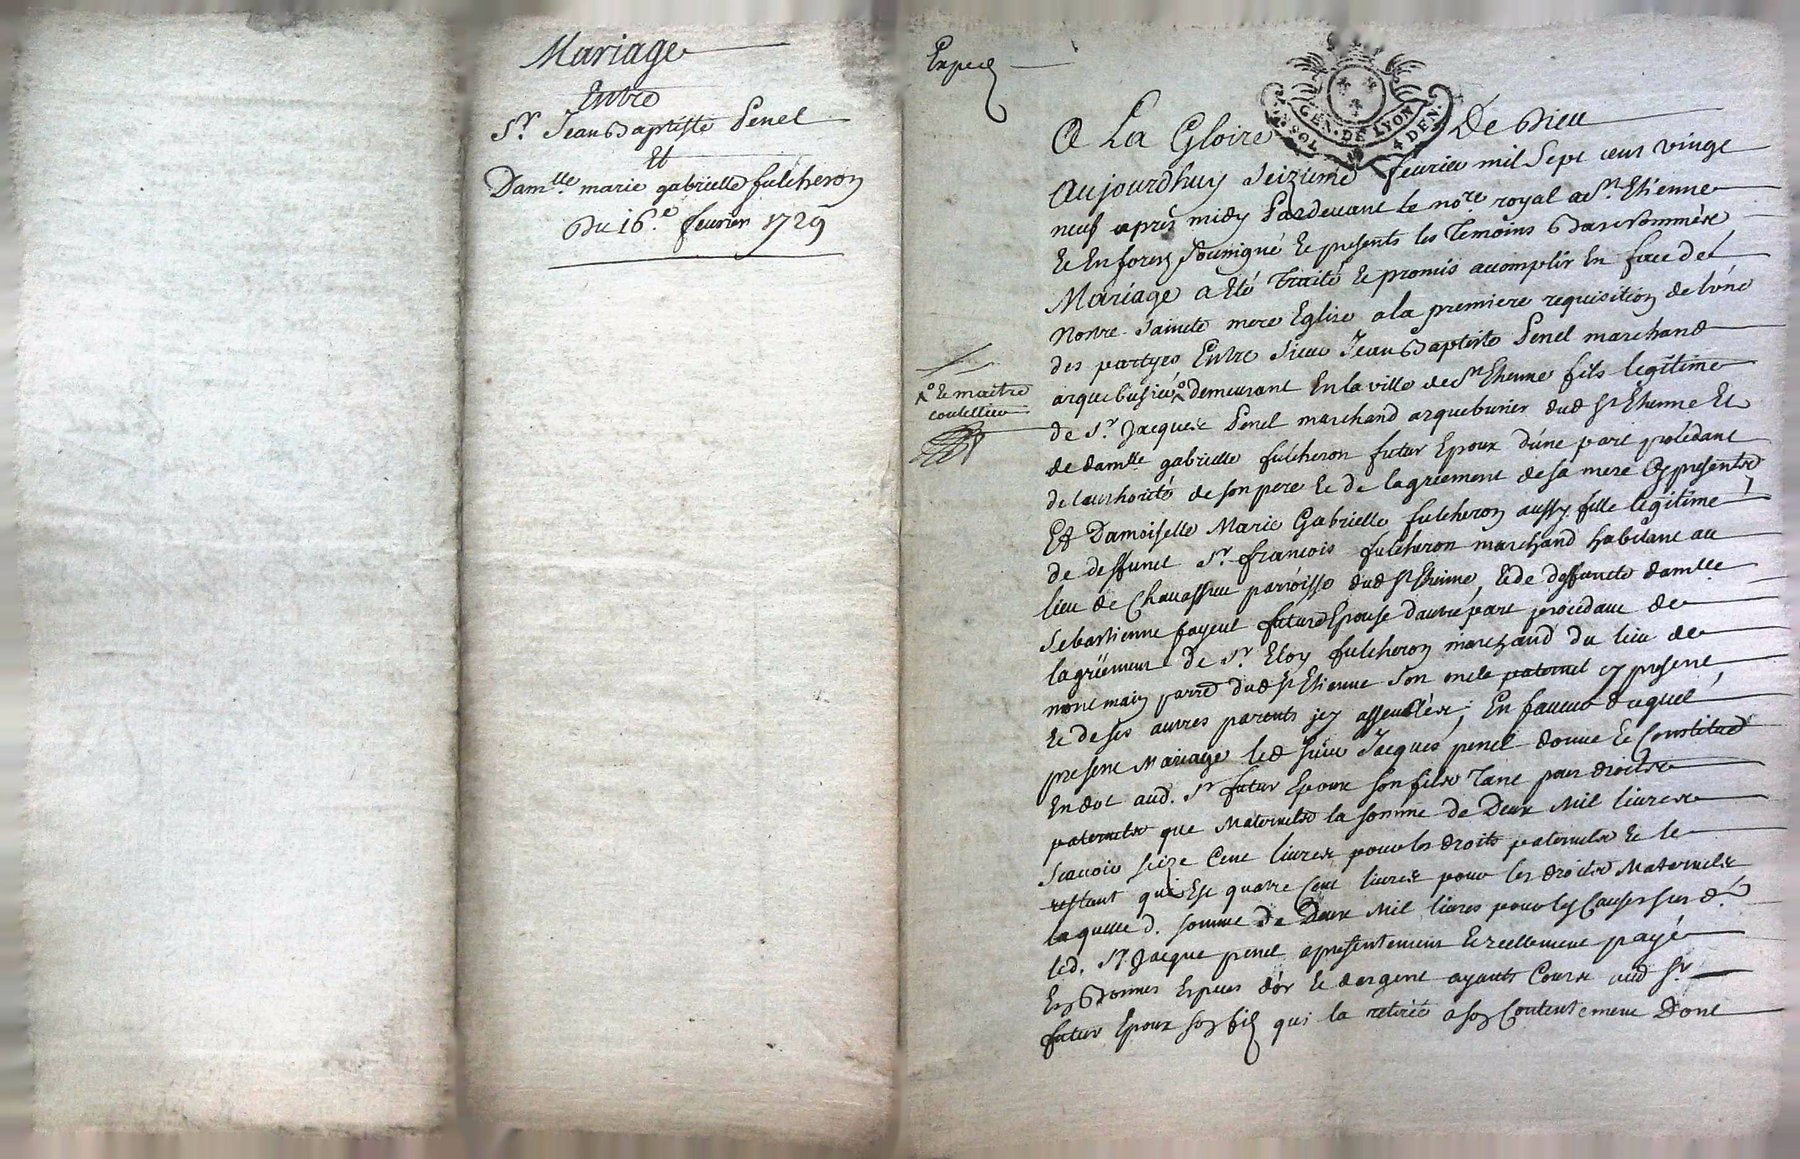 Mariage
Entre
Sr. Jean Baptiste Penel
Et
Damlle. marie gabrielle fulcheron
Du 16e. feurier 1729
Exped
GEN. DE LYON
4 DEN.
A La Gloire De Dieu
Aujourdhuy Seizieme feurier mil Sept cent vingt
neuf apres midy Pardeuant le nore royal a St. Etienne
Et En forez Soussigné Et presents les Temoins Bas nommés
Mariage a Eté Traité Et promis accomplir En face de
Nostre Saincte mere Eglise a la premiere requisition de l'une
des partyes Entre Sieur Jean Baptiste Penel marchand
arquebusier demeurant En la ville de St Etienne fils legitime
& maitre
coutellier
de Sr. Jacques Penel marchand arquebusier dud St Etienne Et
de damlle gabrielle fulcheron futur Epoux d'une part procédant
de l'authorité de son pere Et de lagréement de sa mere Cy presents
Et Damoiselle Marie Gabrielle fulcheron aussy fille legitime
de deffunct Sr. francois fulcheron marchand habitant au
lieu de Chauassieu parroisse dud St Etienne, Et de deffuncte damlle
Sebastienne fayeul future Epouse d'autre part procedant de
lagréement de Sr. Eloy fulcheron marchand du lieu de
montmain parre dud St Etienne Son oncle paternel cy present
Et de ses autres parents icy assemblés; En faueur duquel
present Mariage led Sieur Jacques penel donne Et Constitue
En dot aud. Sr futur Epoux son fils Tant pour droits
paternels que Maternels la somme de Deux Mil liures
Scauoir seize Cent liures pour les droits paternels Et le
restant qui Est quatre Cent liures pour les droits Maternels
laquelle d. somme de Deux Mil liures pour les Causes sus d.
led. Sr. Jacque penel a presentement Et reellement payé
En Bonnes Especes d'or Et d'argent ayants Cours aud Sr
futur Epoux son fils qui la retirée a son Contentement Dont